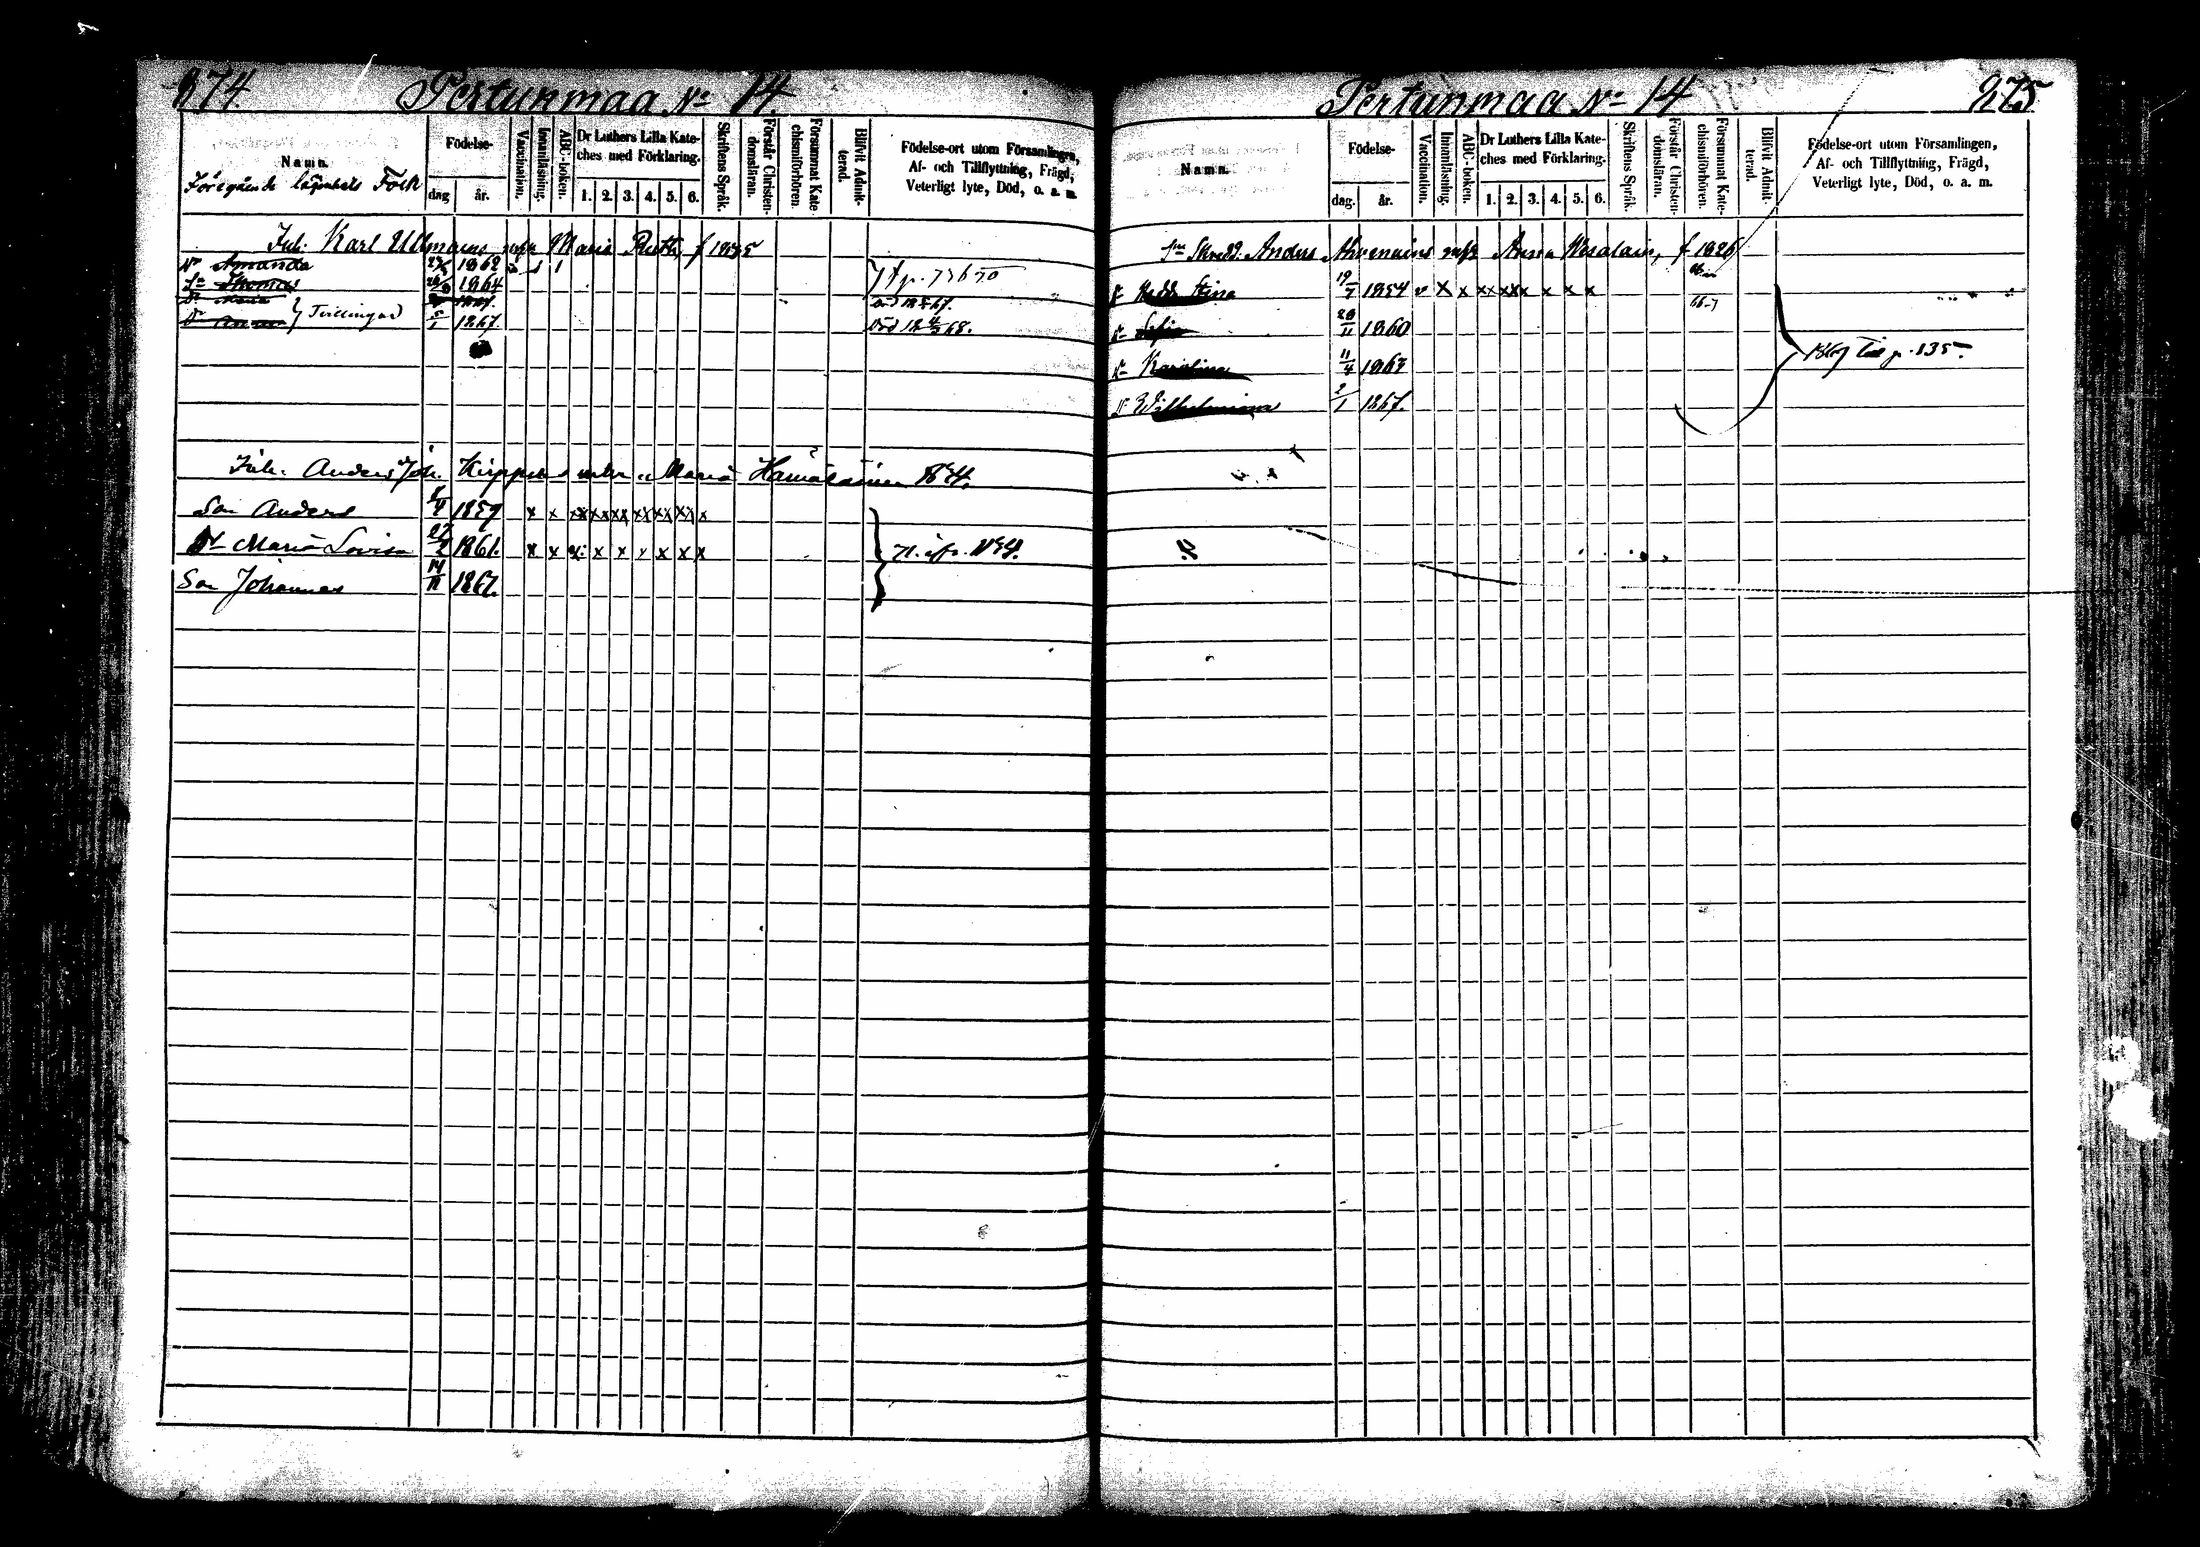 874.
Pertunmaa No 14.
Namn.
Föregående lägenhets Folk
Födelse-
dag
år.
Vaccination.
Innanläsning.
ABC-boken.
Dr Luthers Lilla Kate-
ches med Förklaring.
1. 2. 3. 4. 5. 6.
Skriftens Språk.
Förstår Christen-
domsläran.
Försummat Kate-
chismiförhören.
Blifvit Admit-
terad.
Födelse-ort utom Församlingen,
Af- och Tillflyttning, Frägd,
Veterligt lyte, Död, o. a. m.
Inh. Karl Ullmanns Maria f 1835
Dr Amanda 1862
Sn Thomas 1864
Dr Maria
Dr Anna Tvillingar 5/1 1867. Död 12 4/3 68.
Inh. Anders Joh. Maria Hämäläinen
Son Anders 1859 x x x x x x x x x
Dr Maria Lovisa 22/2 1861. x x x x x x x x x
Son Johannes 14/11 1867.
Pertunmaa No 14
875
Namn.
Födelse-
dag.
år.
Vaccination.
Innanläsning.
ABC-boken.
Dr Luthers Lilla Kate-
ches med Förklaring.
1. 2. 3. 4. 5. 6.
Skriftens Språk.
Förstår Christen-
domsläran.
Försummat Kate-
chismiförhören.
Blifvit Admit-
terad.
Födelse-ort utom Församlingen,
Af- och Tillflyttning, Frägd,
Veterligt lyte, Död, o. a. m.
Anders Ahvenainens Anna f 1826
Dr Hedda Stina 19/7 1854 v x x x x x x x x
Dr Sofia 1860
Dr Karolina 11/4 1863
Dr Wilhelmina 2/1 1867.
1867 till p. 135.